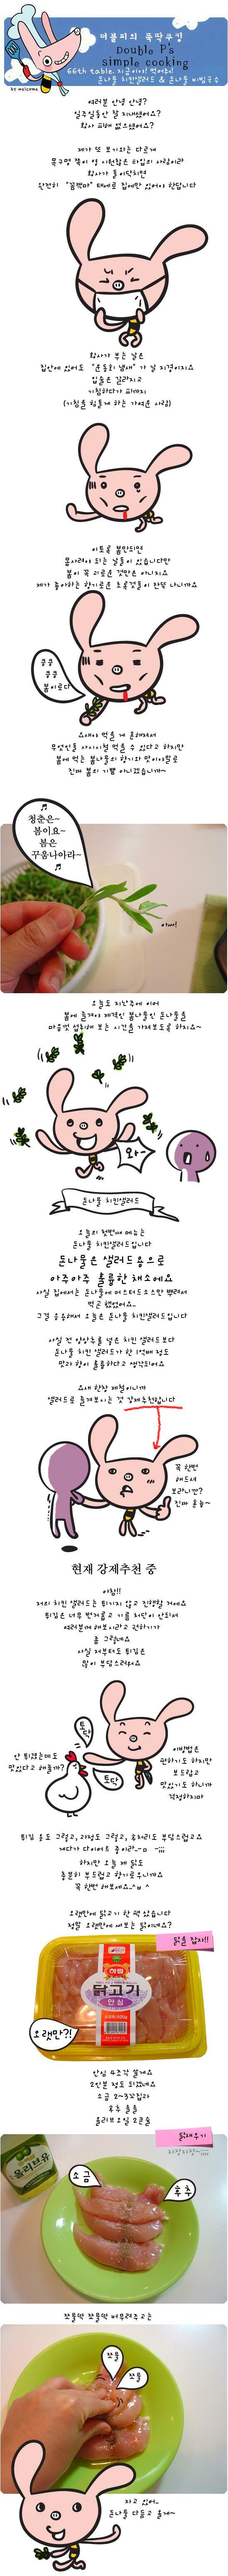 더블피의 뚝딱쿠킹
Double P's
simple cooking
66th table. 지금이야! 먹어줘!
돈나물 치킨샐러드 & 돈나물 비빔국수
by welcome
여러분 안녕 안녕?
일주일동안 잘 지내셨어요?
황사 피해 없으셨어요?
제가 또 보기와는 다르게
황사가 들이닥치면
완전히 "꼼짝마" 태세로 집에만 있어야 한답니다
황사가 부는 날은
집안에 있어도 "운동회 냄새"가 날 지경이지요
입술은 갈라지고
기침하다가 피까지
(기침을 힘들게 하는 가여운 사람)
이토록 봄만되면
몸사려야 되는 날들이 있습니다만
봄이 꼭 괴로운 것만은 아니지요
제가 좋아하는 향기로운 초록것들이 잔뜩 나니까요
킁킁
킁킁
봄이로다
요새야 먹을 게 흔해져서
무엇인들 사시사철 먹을 수 있다고 하지만
봄에 먹는 봄나물의 향기와 맛이야말로
진짜 봄의 기쁨 아니겠습니까~
♬
청춘은~
봄이요~
봄은
꾸움나아라~
♬
오늘도 지난주에 이어
봄에 즐겨야 제격인 봄나물인 돈나물을
마음껏 섭취해 보는 시간을 가져보도록 하지요~
와~
돈나물 치킨샐러드
오늘의 첫번째 메뉴는
돈나물 치킨샐러드입니다
돈나물은 샐러드용으로
아주아주 훌륭한 채소에요
사실 집에서는 돈나물에 머스터드소스만 뿌려서
먹곤 했었어요..
그걸 응용해서 오늘은 돈나물 치킨샐러드입니다
사실 전 양상추를 넣은 치킨 샐러드보다
돈나물 치킨 샐러드가 한 1억배 정도
맛과 향이 훌륭하다고 생각되어요
요새 한창 제철이니까
샐러드로 즐겨보시는 것 강제추천합니다
꼭 한번
해드셔
보라니깐?
진짜 온능~
현재 강제추천 중
아참!!
저의 치킨 샐러드는 튀기지 않고 진행할 거에요
튀김은 너무 번거롭고 기름 처단이 안되서
여러분께 해보시라고 권하기가
좀 그렇네요
사실 저부터도 튀김은
많이 부담스러워요
안 튀겼는데도
맛있다고 해줄까?
토닥
토닥
이방법은
편하기도 하지만
보드랍고
맛있기도 하니까
걱정하지마
튀김 옷도 그렇고, 과정도 그렇고, 뒷처리도 부담스럽고요
게다가 다이어트 중이라..ㅡㅁ ㅡ;;;
하지만 오늘 제 닭도
충분히 부드럽고 향기로우니까요
꼭 한번 해보세요..^ㅂ^
오랜만에 닭고기 한 팩 샀습니다
정말 오랜만에 써보는 닭이네요?
닭을 잡자!!
하림
닭고기
안심
오랫만?!
안심 4조각 쓸게요
2인분 정도 되겠네요
소금 2~3꼬집과
후추 솔솔
올리브오일 2큰술
닭재우기
올리브유
소금
후추
쪼물딱 쪼물딱 버무려주고는
쪼물
쪼물
자고 있어..
돈나물 다듬고 올게~